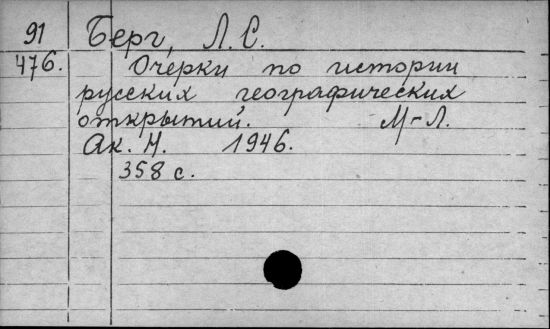 91 Берг, Л. С.
476. Очерки по истории
русских географических
открытий. М-Л.
Ак. Н. 1946.
358 с.